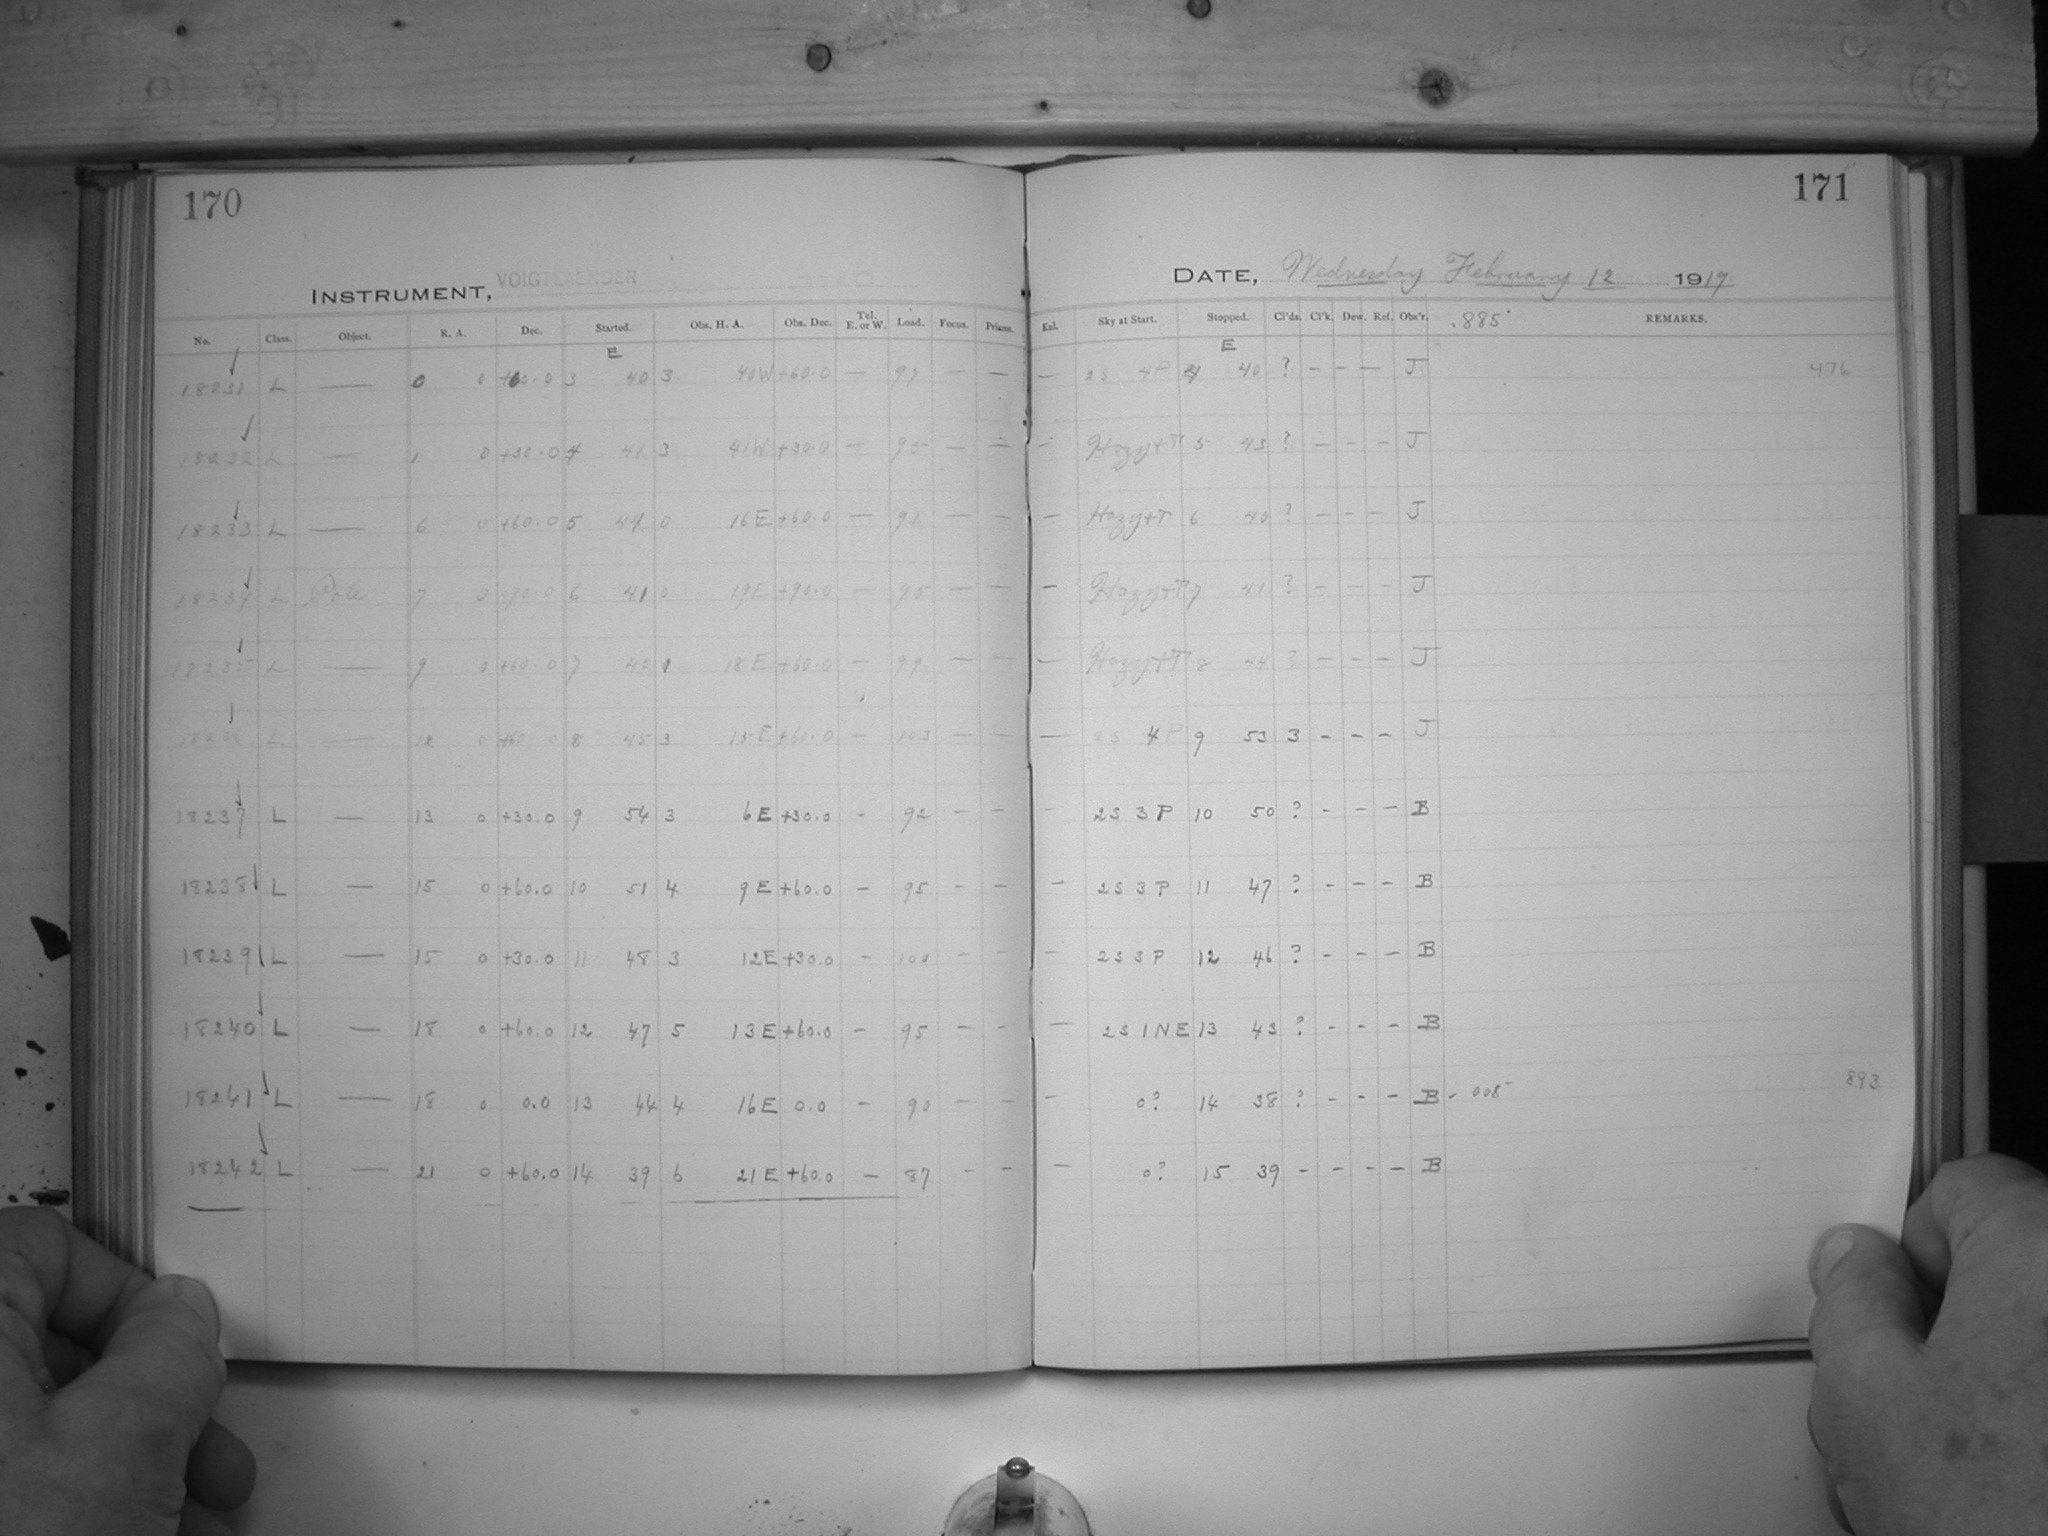 170
171
INSTRUMENT, VOIGTLAENDER
DATE, Wednesday February 12 1919
No. Class. Object. R. A. Dec. Started. Obs. H. A. Obs. Dec. Tel. E. or W. Load. Focus. Prisms. Enl. Sky at Start. Stopped. Cl'ds. Cl'k. Dew. Ref. Obs'r. .885 REMARKS.
E E
18231 L — 0 0 +60.0 3 40 3 40W +60.0 — — — — 2S 4P 4 40 ? – – — J 476
18232 L — 1 0 +30.0 4 41 3 41W +30.0 — 95 — — — Hazy+T 5 43 ? – – – J
18233 L — 6 0 +60.0 5 44 0 16E +60.0 — — — — Hazy+T 6 40 ? – – – J
18234 L Pole 7 0 +90.0 6 41 0 19E +90.0 — 95 — — — Hazy+T 7 41 ? – – – J
18235 L — 9 0 +60.0 7 1 18E +60.0 — 99 — — — Hazy+T 8 44 ? – – – J
18236 L — 12 0 +60.0 8 45 3 15E +60.0 — 103 — — — 2S 4P 9 53 3 – – – J
18237 L — 13 0 +30.0 9 54 3 6E +30.0 – 92 – – – 2S 3P 10 50 ? – – – B
18238 L — 15 0 +60.0 10 51 4 9E +60.0 – 95 – – – 2S 3P 11 47 ? – – – B
18239 L — 15 0 +30.0 11 48 3 12E +30.0 – 100 – – – 2S 3P 12 46 ? – – – B
18240 L — 18 0 +60.0 12 47 5 13E +60.0 – 95 – – — 2S 1NE 13 43 ? – – – B
18241 L — 18 0 0.0 13 44 4 16E 0.0 – 90 – – – 0? 14 38 ? – – – B – 008 893
18242 L — 21 0 +60.0 14 39 6 21E +60.0 – 87 – – — 0? 15 39 – – – – B